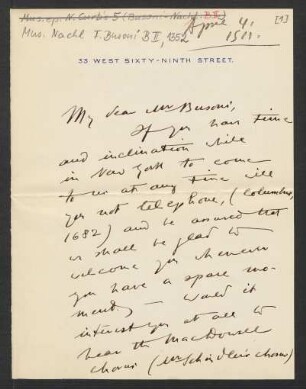 Mus. ep. N. Curtis 5 (Busoni-Nachl. B II)
Mus. Nachl. F. Busoni B II, 1352
[1]
April 4.
1911.
33 WEST SIXTY-NINTH STREET.
My dear Mr Busoni,
If you have time
and inclination while
in New York to come
to us at any time will
you not telephone, (Columbus,
1682) and be assured that
we shall be glad to
welcome you whenever
you have a spare mo-
ment? — Would it
interest you at all to
hear the MacDowell
chorus (Mr Schindler's chorus)